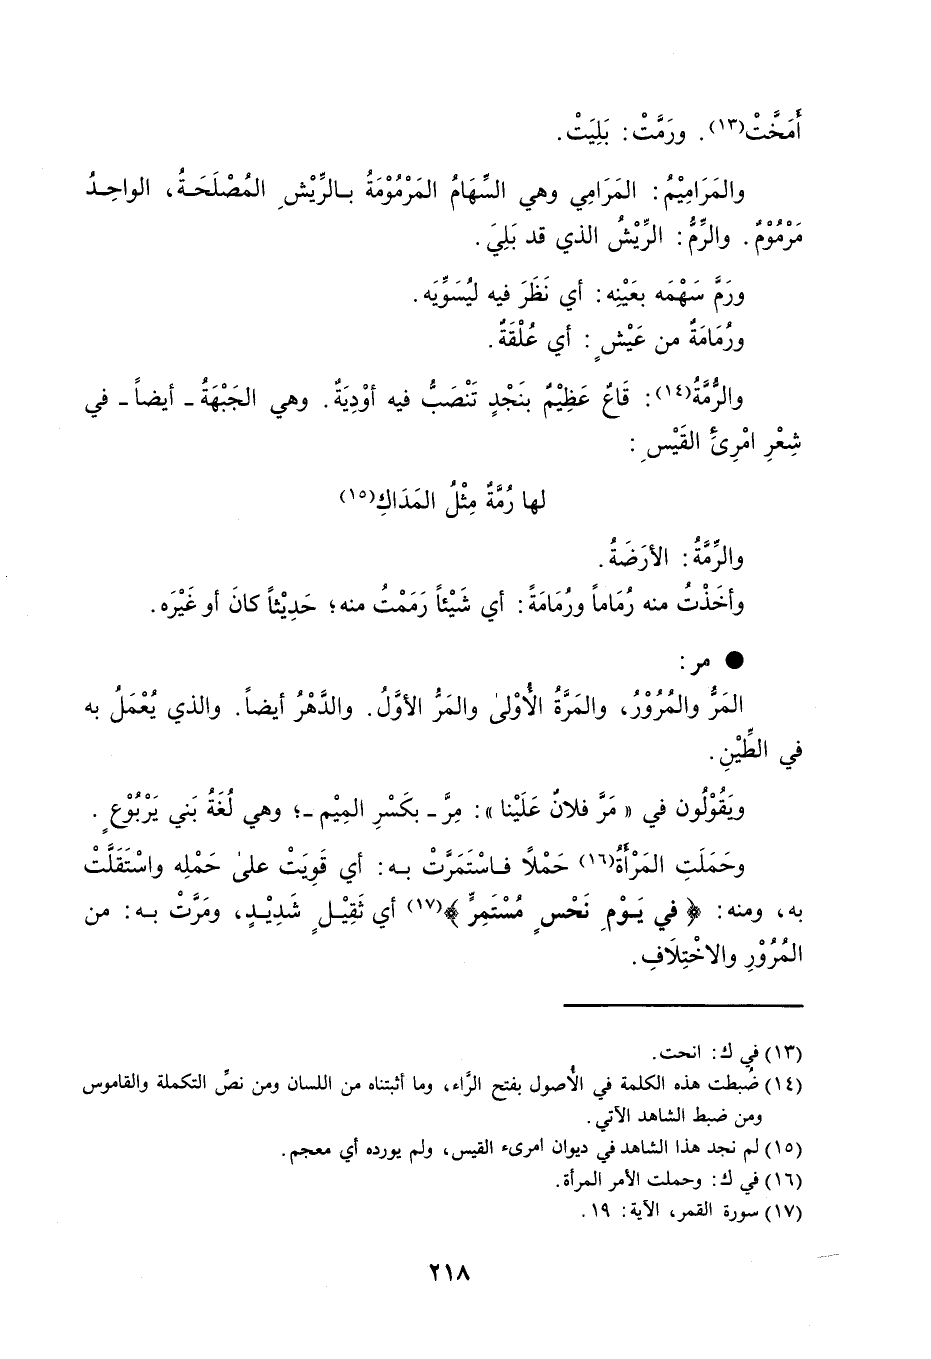 أَمَخَّتْ(١٣). ورَمَّتْ: بَلِيَتْ.
والمَرَامِيْمُ: المَرَامِي وهي السِّهَامُ المَرْمُوْمَةُ بالرِّيْشِ المُصْلَحَةُ، الواحِدُ
مَرْمُوْمٌ. والرِّمُّ: الرِّيْشُ الذي قد بَلِيَ.
ورَمَّ سَهْمَه بعَيْنِه: أي نَظَرَ فيه ليُسَوِّيَه.
ورُمَامَةٌ من عَيْشٍ: أي عُلْقَةٌ.
والرُّمَّةُ(١٤): قَاعٌ عَظِيْمٌ بنَجْدٍ تَنْصَبُّ فيه أوْدِيَةٌ. وهي الجَبْهَةُ ـ أيضاً ـ في
شِعْرِ امْرِئَ القَيْسِ:
لها رُمَّةٌ مِثْلُ المَدَاكِ(١٥)
والرِّمَّةُ: الأرَضَةُ.
وأخَذْتُ منه رُمَاماً ورُمَامَةً: أي شَيْئاً رَمَمْتُ منه؛ حَدِيْثاً كانَ أو غَيْرَه.
● مر:
المَرُّ والمُرُوْرُ، والمَرَّةُ الأُوْلىٰ والمَرُّ الأوَّلُ. والدَّهْرُ أيضاً. والذي يُعْمَلُ به
في الطِّيْنِ.
ويَقُوْلُون في « مَرَّ فلانٌ عَلَيْنا »: مِرَّ ـ بكَسْرِ المِيْمِ ـ؛ وهي لُغَةُ بَني يَرْبُوْعٍ.
وحَمَلَتِ المَرْأَةُ(١٦) حَمْلاً فاسْتَمَرَّتْ به: أي قَوِيَتْ علىٰ حَمْلِه واسْتَقَلَّتْ
به، ومنه: ﴿ في يَوْمِ نَحْسٍ مُسْتَمِرٍّ ﴾(١٧) أي ثَقِيْلٍ شَدِيْدٍ، ومَرَّتْ به: من
المُرُوْرِ والاخْتِلَافِ.
(١٣) في ك: انحت.
(١٤) ضُبطت هذه الكلمة في الأُصول بفتح الرَّاء، وما أثبتناه من اللسان ومن نصِّ التكملة والقاموس
ومن ضبط الشاهد الآتي.
(١٥) لم نجد هذا الشاهد في ديوان امرىء القيس، ولم يورده أي معجم.
(١٦) في ك: وحملت الأمر المرأة.
(١٧) سورة القمر، الآية: ١٩.
٢١٨